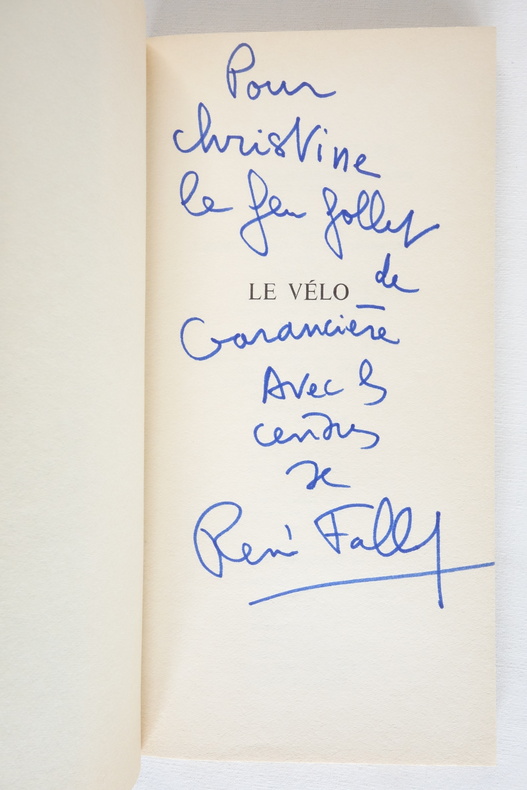 Pour
christine
le feu follet
de
LE VÉLO
Garancière
Avec les
cendres
de
René Fallet